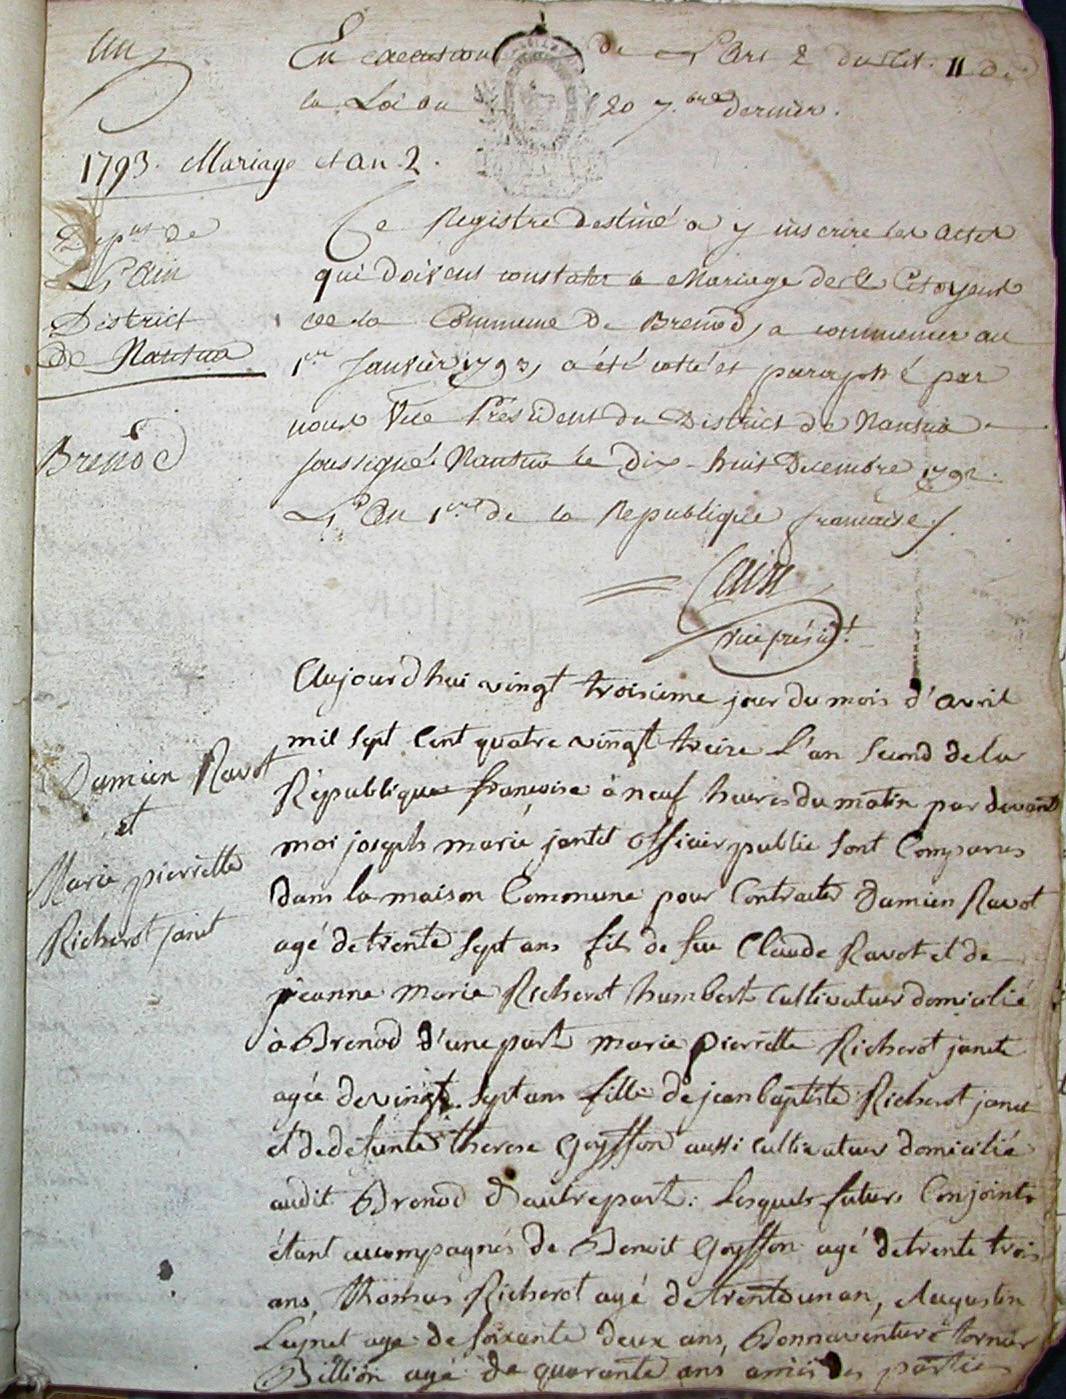 un
En execution de L'Art 2 du Tit. II de
la Loi du 20 7.bre dernier.
1793. Mariage et an 2.
Depmt de
L'Ain
District
de Nantua
Brenod
Ce Registre destiné a y inscrire les actes
qui doivent constater le Mariage des Citoyens
de la Commune de Brenod, a commencer au
1er Janvier 1793, a été cotté et paraphé par
nous Vice President du District de Nantua
soussigné. Nantua le dix-huit Decembre 1792.
L'An 1er de la Republique francaise /.
vice présidt
Damien Ravot
et
Marie pierrette
Richerot janet
Aujourd'hui vingt troisieme jour du mois d'avril
mil sept Cent quatre vingt treize L'an Second de la
République françoise à neuf heures du matin par devant
moi joseph marie jantet officier public sont Comparus
dans la maison Commune pour Contracter Damien Ravot
agé de trente sept ans fils de feu Claude Ravot et de
jeanne marie Richerot humbert Cultivateur domicilié
à Brenod d'une part marie pierrette Richerot janete
agée de vingt sept ans fille de jean baptiste Richerot janet
et de defunte therese Goyffon aussi cultivateur domicilié
audit Brenod d'autre part: Lesquels futurs Conjoints
étant accompagnés de Benoit Goyffon agé de trente trois
ans, thomas Richerot agé de trente un an, Augustin
agé de soixante deux ans, Bonnaventure tornier
Billion agé de quarante ans amis des parties